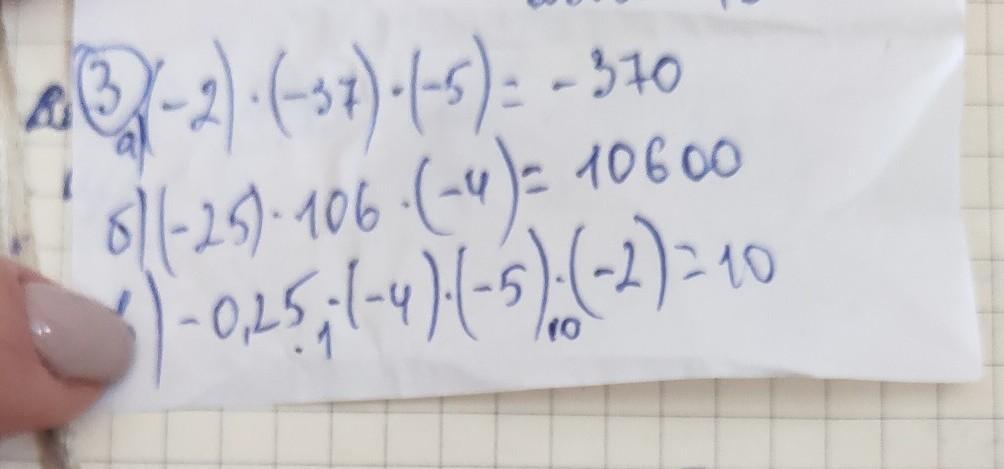 ③ а) (-2) · (-37) · (-5) = -370
б) (-25) · 106 · (-4) = 10600
) -0,25 · (-4) · (-5) · (-2) = 10
· 1 10